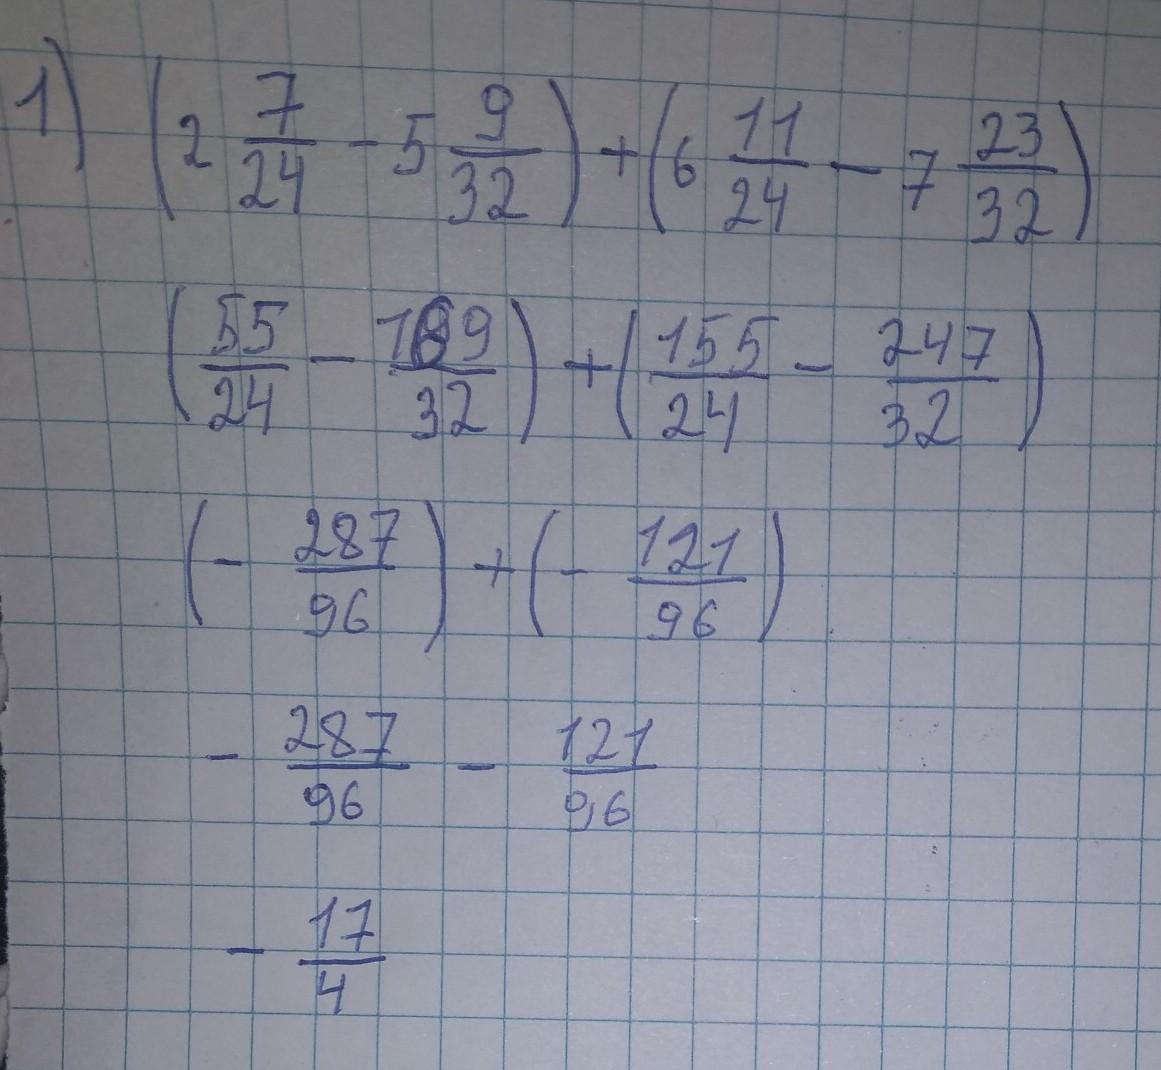 1) (2 7/24 - 5 9/32) + (6 11/24 - 7 23/32)
(55/24 - 169/32) + (155/24 - 247/32)
(- 287/96) + (- 121/96)
- 287/96 - 121/96
- 17/4